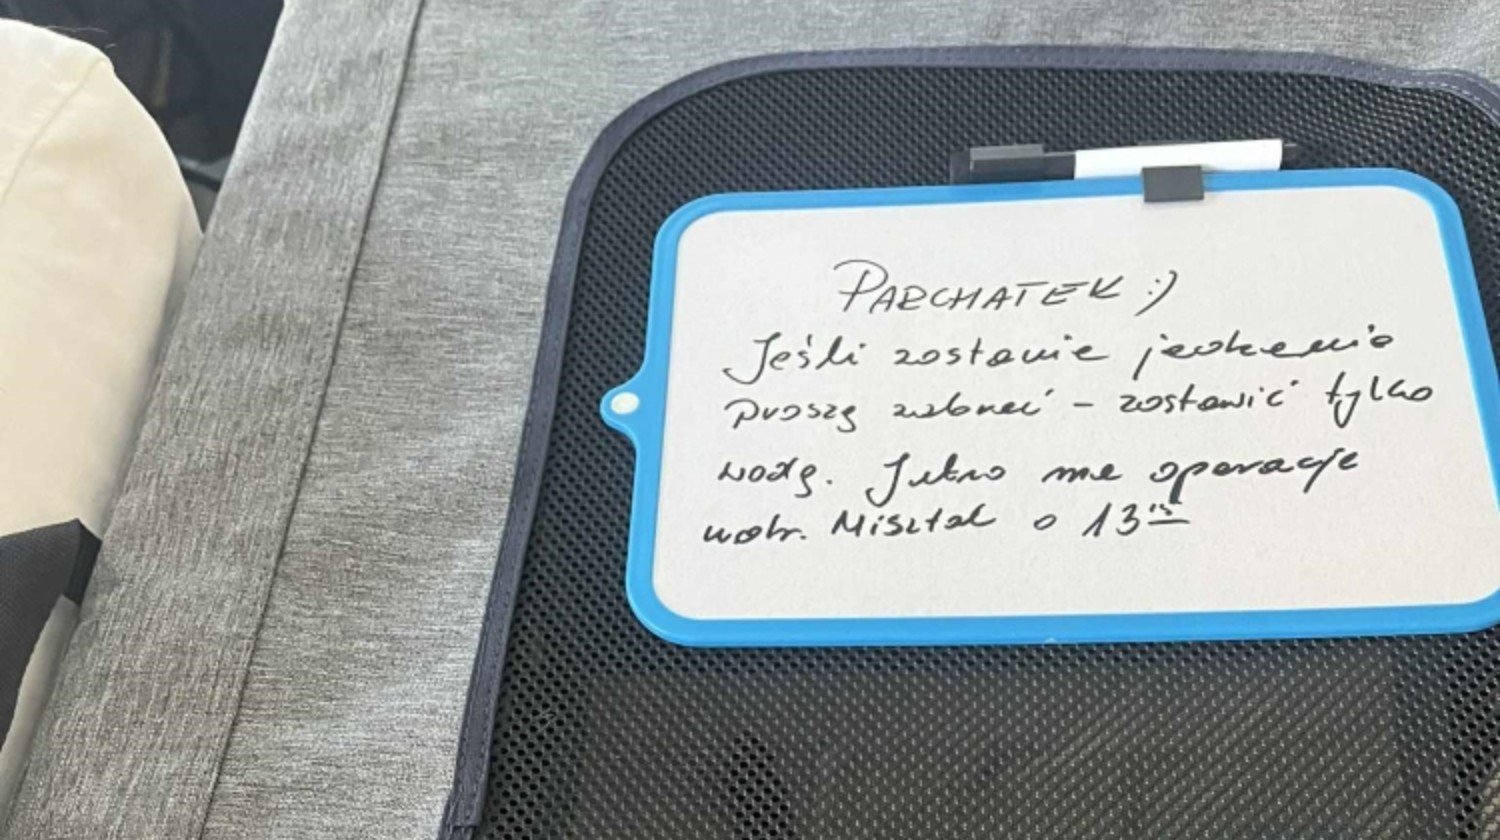 PARCHATEK :)
Jeśli zostanie jedzenie
proszę zabrać – zostawić tylko
wodę. Jutro ma operację
wetr. Misztal o 13